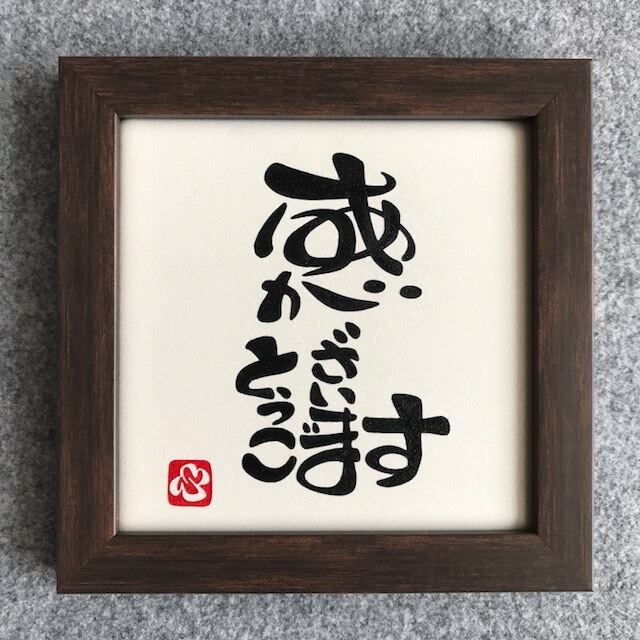 ありがとうございます
心